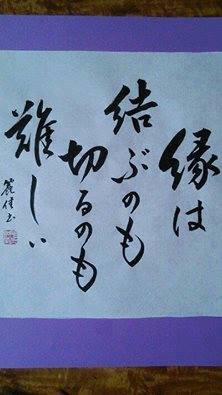 縁は
結ぶのも
切るのも
難しい